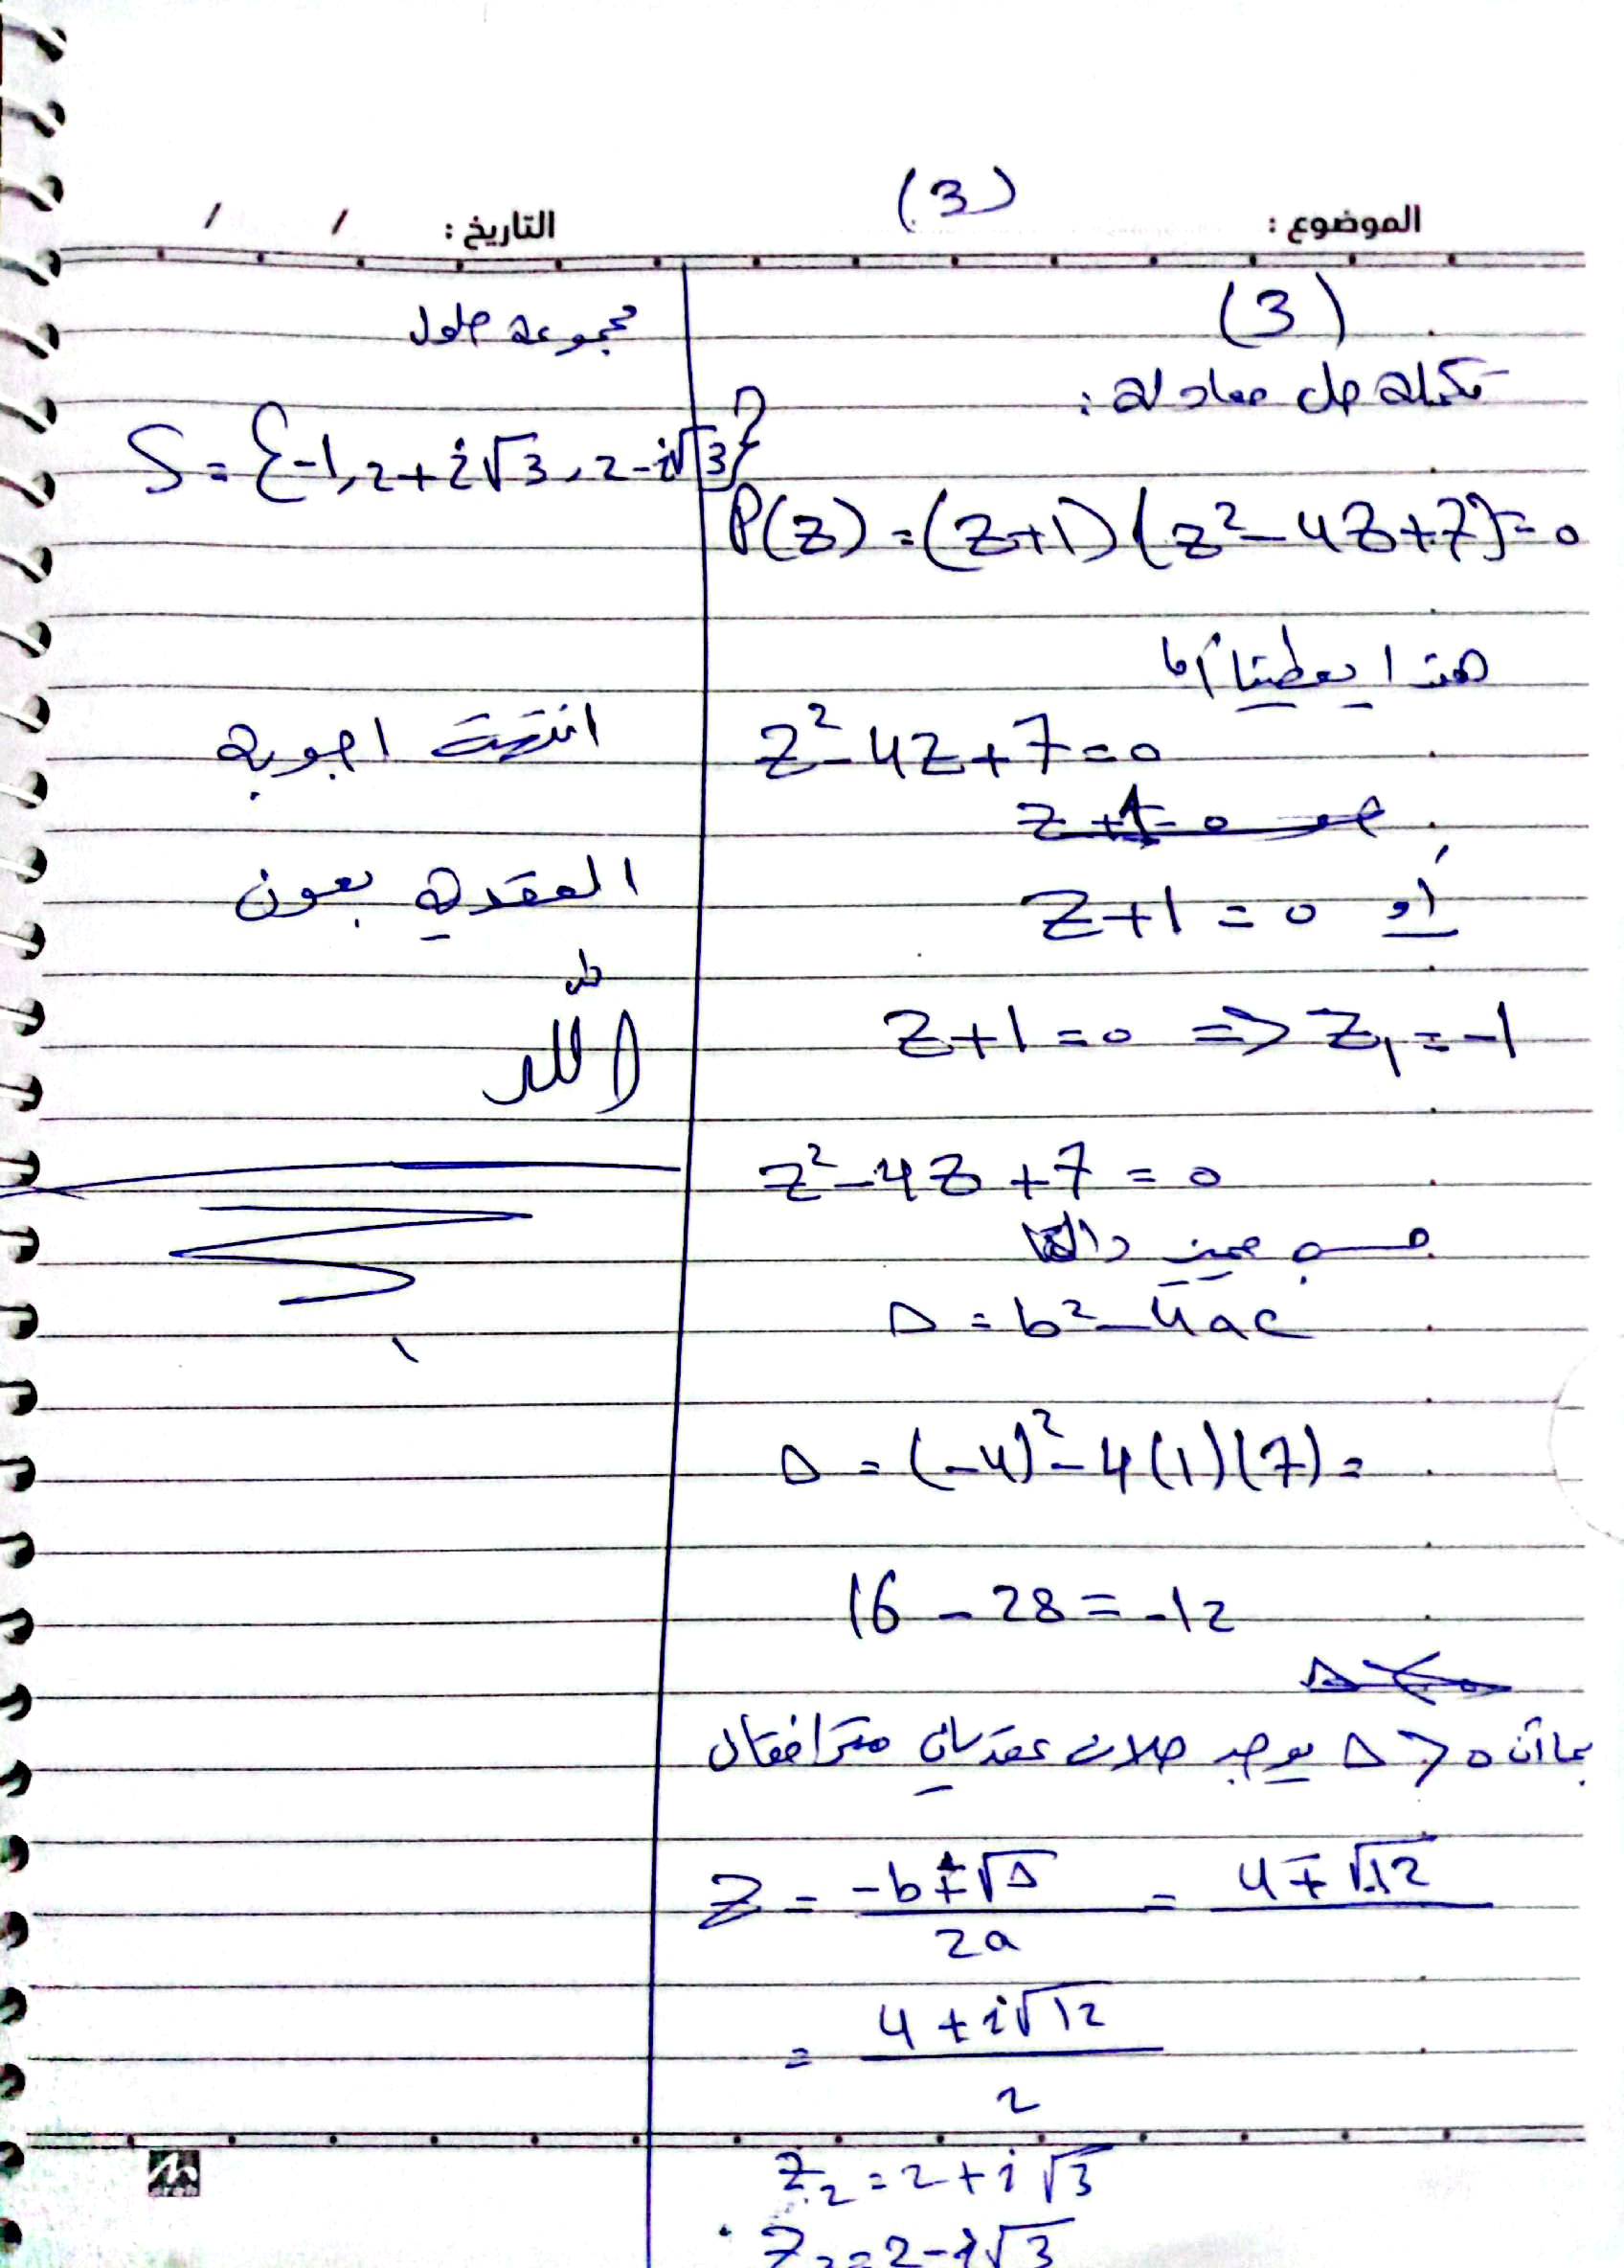 (3)
الموضوع :
التاريخ : / /
(3)
تكملة حل معادلة :
P(z) = (z+1)(z²-4z+7)=0
هذا يعطينا أما
z²-4z+7=0
z+1=0
أو z+1=0
z+1=0 => z₁=-1
z²-4z+7=0
Δ = b²-4ac
Δ = (-4)²-4(1)(7)=
16-28=-12
بما أن Δ>0 يوجد حلان عقديان مترافقان
z = (-b∓√Δ)/2a = 4∓√-12
= (4+i√12)/2
z₂=2+i√3
z₃=2-i√3
مجموعة حلول
S={-1,2+i√3,2-i√3}
انتهت اجوبة
العقدية بعون
الله